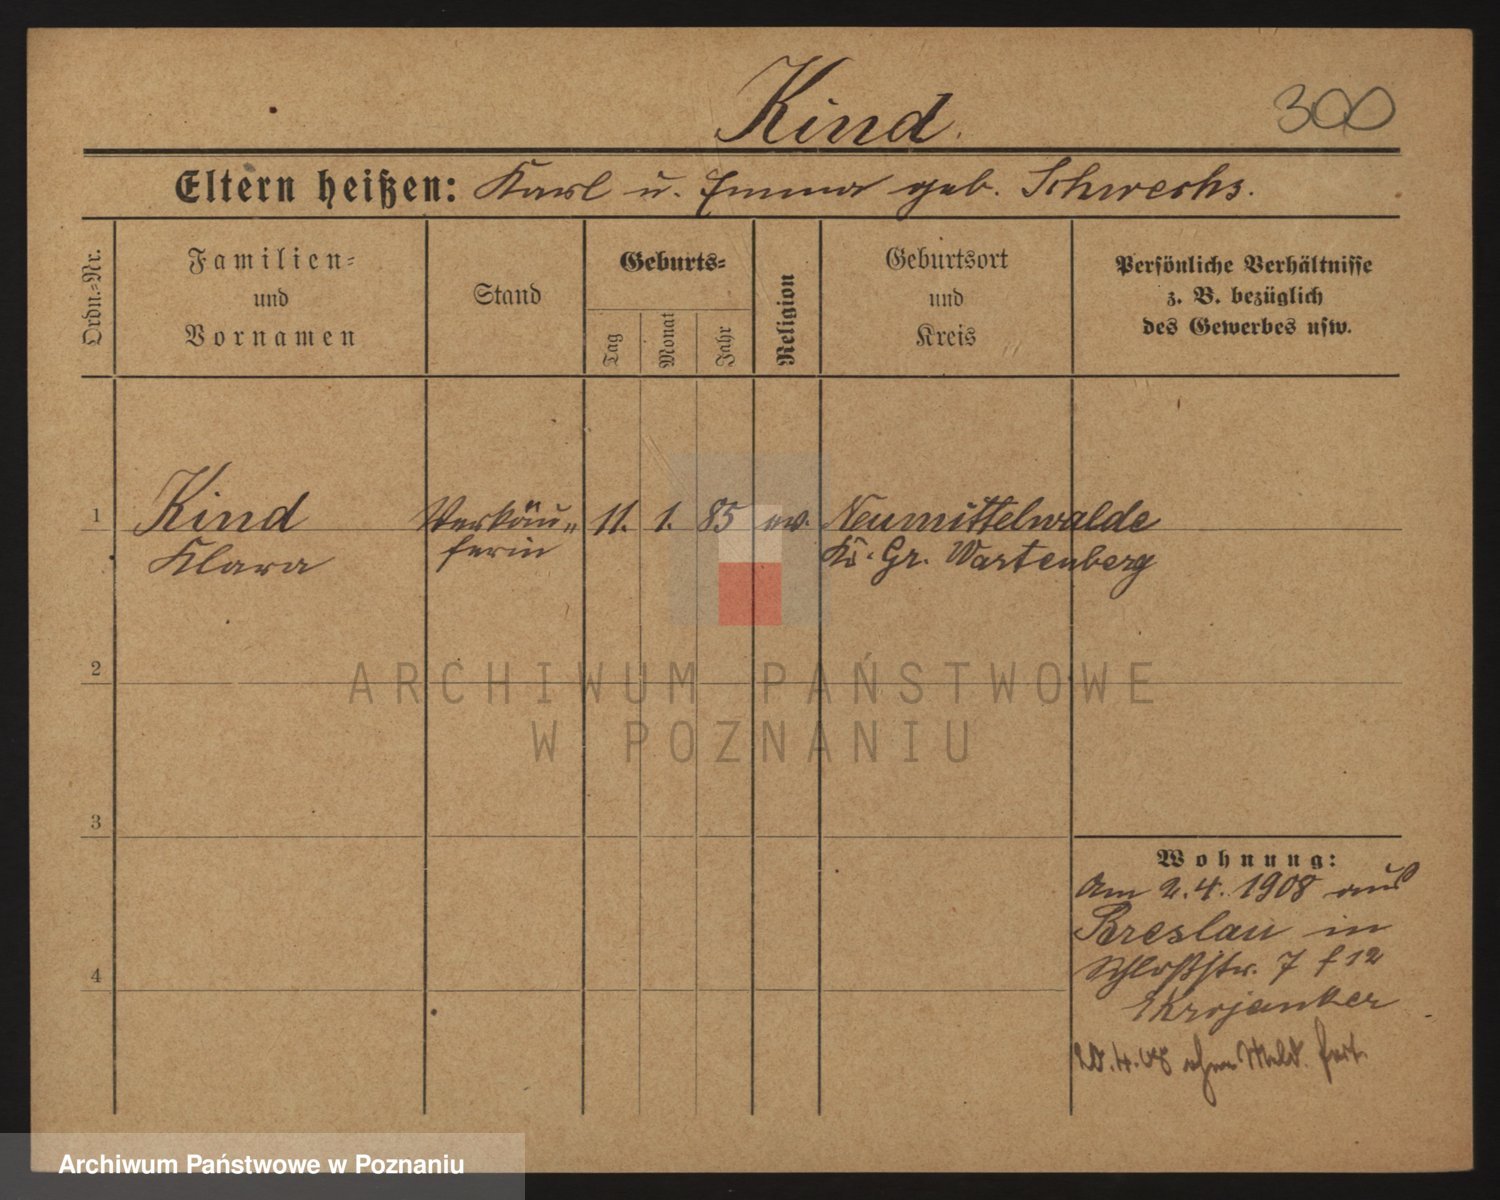 Kind.
300
Eltern heißen: Karl u. Emma geb. Schwechs.
Ordn.-Nr.
Familien-
und
Vornamen
Stand
Geburts-
Tag
Monat
Jahr
Religion
Geburtsort
und
Kreis
Persönliche Verhältnisse
z. B. bezüglich
des Gewerbes usw.
1
Kind
Klara
Verkäu-
ferin
11. 1. 85 ev.
Neumittelwalde
Kr. Gr. Wartenberg
2
ARCHIWUM PAŃSTWOWE
W POZNANIU
3
Wohnung:
Am 2.4.1908 aus
Breslau in
Schloßstr. 7 f 12
Krojanker
4
20.4.08 ohne Meld. fort.
Archiwum Państwowe w Poznaniu